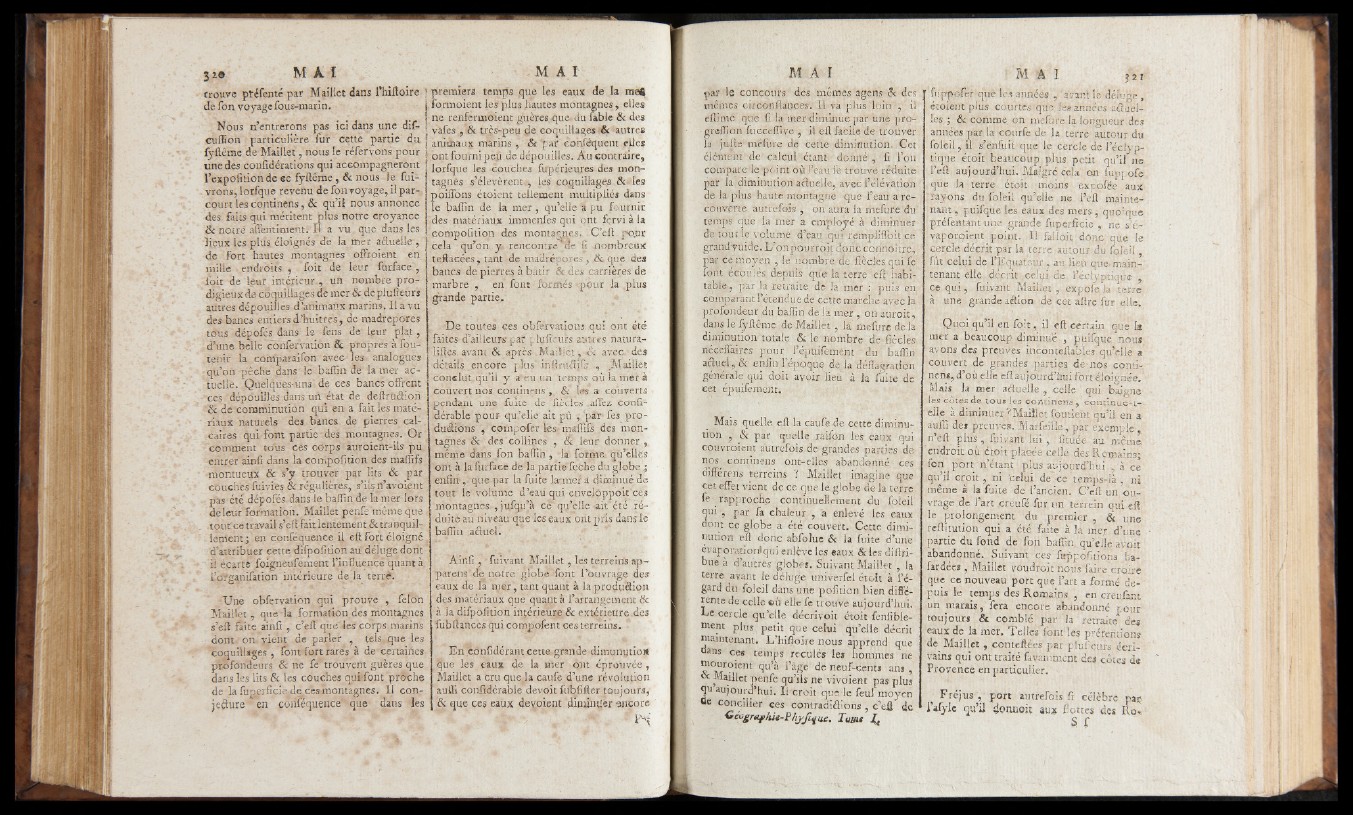 320 MAI
trouve préſenté par Maillet dans l'hiſtoire
de ſon voyage ſous-marin.
Nous n'entrerons pas ici dans une diſ-
cuſſion particulière ſur cette partie du
ſyſtême de Maillet, nous le réſervons pour
une des conſidérations qui accompagneront
l'expoſition de ce ſyſtême, & nous le ſui-
vrons, lorſque revenu de ſon voyage, il par-
court les continens, & qu'il nous annonce
des faits qui méritent plus notre croyance
& notre aſſentiment. Il a vu que dans les
lieux les plus éloignés de la mer actuelle,
de fort hautes montagnes offroient en
mille endroits, ſoit de leur ſurface,
ſoit de leur intérieur, un nombre pro-
digieux de coquillages de mer & de pluſieurs
autres dépouilles d'animaux marins. Il a vu
des bancs entiers d'huitres, de madrepores
tous dépoſés dans le ſens de leur plat,
d'une belle conſervation & propres à ſou-
tenir la comparaiſon avec les analogues
qu'on pêche dans le baſſin de la mer ac-
tuelle. Quelques-uns de ces bancs offrent
ces dépouilles dans un état de deſtruction
& de comminution qui en a fait les maté-
riaux naturels des bancs de pierres cal-
caires qui font partie des montagnes. Or
comment tous ces corps auroient-ils pu
entrer ainſi dans la compoſition des maſſifs
montueux & s'y trouver par lits & par
couches ſuivies & régulières, s'ils n'avoient
pas été dépoſés dans le baſſin de la mer lors
de leur formation. Maillet penſe même que
tout ce travail s'eſt fait lentement & tranquil-
lement; en conſéquence il eſt fort éloigné
d'attribuer cette diſpoſition au déluge dont
il écarte ſoigneuſement l'influence quant à
l'organiſation intérieure de la terre.
Une obſervation qui prouve, ſelon
Maillet, que la formation des montagnes
s'eſt faite ainſi, c'eſt que les corps marins
dont on vient de parler, tels que les
coquillages, ſont fort rares à de certaines
profondeurs & ne ſe trouvent guères que
dans les lits & les couches qui ſont proche
de la ſuperficie de ces montagnes. Il con-
jecture en conſéquence que dans les
MAI
premiers temps que les eaux de la mer
formoient les plus hautes montagnes, elles
ne renfermoient guères que du ſable & des
vaſes, & très-peu de coquillages & autres
animaux marins, & par conſéquent elles
ont fourni peu de dépouilles. Au contraire,
lorſque les couches ſupérieures des mon-
tagnes s'élevèrent, les coquillages & les
poiſſons étoient tellement multipliés dans
le baſſin de la mer, qu'elle a pu fournir
des matériaux immenſes qui ont ſervi à la
compoſition des montagnes. C'eſt pour
cela qu'on y rencontre de ſi nombreux
teſtacées, tant de madrépores, & que des
bancs de pierres à bâtir & des carrières de
marbre, en ſont formés pour la plus
grande partie.
De toutes ces obſervations qui ont été
faites d'ailleurs par pluſieurs autres natura-
liſtes avant & après Maillet, & avec des
détails encore plus inſtructifs, Maillet
conclut qu'il y a eu un temps où la mer a
couvert nos continens, & les a couverts
pendant une ſuite de ſiècles aſſez conſi-
dérable pour qu'elle ait pû, par ſes pro-
ductions, compoſer les maſſifs des mon-
tagnes & des collines, & leur donner,
même dans ſon baſſin, la forme qu'elles
ont à la ſurface de la partie ſèche du globe;
enfin, que par la ſuite la mer a diminué de
tout le volume d'eau qui enveloppoit ces
montagnes, juſqu'à ce qu'elle ait été ré-
duite au niveau que les eaux ont pris dans le
baſſin actuel.
Ainſi, ſuivant Maillet, les terreins ap-
parens de notre globe ſont l'ouvrage des
eaux de la mer, tant quant à la production
des matériaux que quant à l'arrangement &
à la diſpoſition intérieure & extérieure des
ſubſtances qui compoſent ces terreins.
En conſidérant cette grande diminution
que les eaux de la mer ont éprouvée,
Maillet a cru que la cauſe d'une révolution
auſſi conſidérable devoit ſubſiſter toujours,
& que ces eaux devoient diminuer encore
MAI
par le concours des mêmes agens & des
mêmes circonſtances. Il va plus loin, il
eſtime que ſi la mer diminue par une pro-
greſſion ſucceſſive, il eſt facile de trouver
la juſte meſure de cette diminution. Cet
élément de calcul étant donné, ſi l'on
compare le point où l'eau ſe trouve réduite
par la diminution actuelle, avec l'élévation
de la plus haute montagne que l'eau a re-
couverte autrefois, on aura la meſure du
temps que la mer a employé à diminuer
de tout le volume d'eau qui rempliſſoit ce
grand vuide. L'on pourroit donc connoître,
par ce moyen, le nombre de ſiècles qui ſe
ſont écoulés depuis que la terre eſt habi-
table, par la retraite de la mer; puis en
comparant l'étendue de cette marche avec la
profondeur du baſſin de la mer, on auroit,
dans le ſyſtême de Maillet, la meſure de la
diminution totale & le nombre de ſiècles
néceſſaires pour l'épuiſement du baſſin
actuel, & enfin l'époque de la déflagration
générale qui doit avoir lieu à la ſuite de
cet épuiſement.
Mais quelle eſt la cauſe de cette diminu-
tion, & par quelle raiſon les eaux qui
couvroient autrefois de grandes parties de
nos continens ont-elles abandonné ces
différens terreins? Maillet imagine que
cet effet vient de ce que le globe de la terre
ſe rapproche continuellement du ſoleil
qui, par ſa chaleur, a enlevé les eaux
dont ce globe a été couvert. Cette dimi-
nution eſt donc abſolue & la ſuite d'une
évaporation qui enlève les eaux & les diſtri-
bue à d'autres globes. Suivant Maillet, la
terre avant le déluge univerſel étoit à l'é-
gard du ſoleil dans une poſition bien diffé-
rente de celle où elle ſe trouve aujourd'hui.
Le cercle qu'elle décrivoit étoit ſenſible-
ment plus petit que celui qu'elle décrit
maintenant. L'hiſtoire nous apprend que
dans ces temps reculés les hommes ne
mouroient qu'à l'âge de neuf-cents ans,
& Maillet penſe qu'ils ne vivoient pas plus
qu'aujourd'hui. Il croit que le ſeul moyen
de concilier ces contradictions, c'eſt de
Géographie-Phyſique. Tome I.
MAI 321
ſuppoſer que les années, avant le déluge,
étoient plus courtes que les années actuel-
les; & comme on meſure la longueur des
années par la courſe de la terre autour du
ſoleil, il s'enſuit que le cercle de l'éclyp-
tique étoit beaucoup plus petit qu'il ne
l'eſt aujourd'hui. Malgré cela on ſuppoſe
que la terre étoit moins expoſée aux
rayons du ſoleil qu'elle ne l'eſt mainte-
nant, puiſque les eaux des mers, quoique
préſentant une grande ſuperficie, ne s'é-
vaporoient point. Il falloit donc que le
cercle décrit par la terre autour du ſoleil,
fût celui de l'équateur, au lieu que main-
tenant elle décrit celui de l'éclyptique,
ce qui, ſuivant Maillet, expoſe la terre
à une grande action de cet aſtre ſur elle.
Quoi qu'il en ſoit, il eſt certain que la
mer a beaucoup diminué, puiſque nous
avons des preuves inconteſtables qu'elle a
couvert de grandes parties de nos conti-
nens, d'où elle eſt aujourd'hui fort éloignée.
Mais la mer actuelle, celle qui baigne
les côtes de tous les continens, continue-t-
elle à diminuer? Maillet ſoutient qu'il en a
auſſi des preuves. Marſeille, par exemple,
n'eſt plus, ſuivant lui, ſituée au même
endroit où étoit placée celle des Romains;
ſon port n'étant plus aujourd'hui, à ce
qu'il croit, ni celui de ce temps-là, ni
même à la ſuite de l'ancien. C'eſt un ou-
vrage de l'art creuſé ſur un terrein qui eſt
le prolongement du premier, & une
reſtitution qui a été faite à la mer d'une
partie du fond de ſon baſſin qu'elle avoit
abandonné. Suivant ces ſuppoſitions ha-
ſardées, Maillet voudroit nous faire croire
que ce nouveau port que l'art a formé de-
puis le temps des Romains, en creuſant
un marais, ſera encore abandonné pour
toujours & comblé par la retraite des
eaux de la mer. Telles ſont les prétentions
de Maillet, conteſtées par pluſieurs écri-
vains qui ont traité ſavamment des côtes de
Provence en particulier.
Fréjus, port autrefois ſi célèbre par
l'aſyle qu'il donnoit aux flottes des Ro-
S ſ